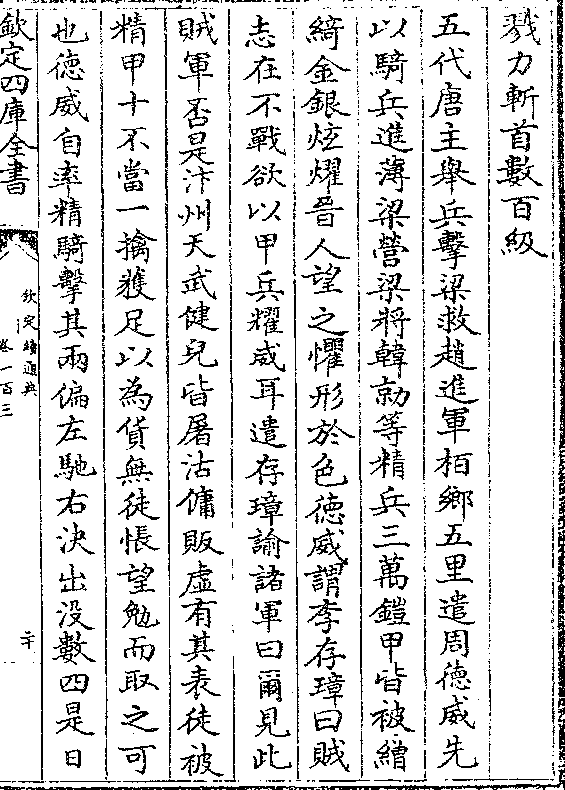 戮力斬首數百級
五代唐主舉兵擊梁救趙進軍栢鄉五里遣周德威先
以騎兵進薄梁營梁將韓勍等精兵三萬鎧甲皆被繒
綺金銀炫燿晉人望之懼形於色德威謂李存璋曰賊
志在不戰欲以甲兵耀威耳遣存璋諭諸軍曰爾見此
賊軍否是汴州天武健兒皆屠沽傭販虛有其表徒被
精甲十不當一擒獲足以為貨無徒悵望勉而取之可
也德威自率精騎擊其兩偏左馳右決出没數四是日
欽定四庫全書
欽定續通典
卷一百三
二十